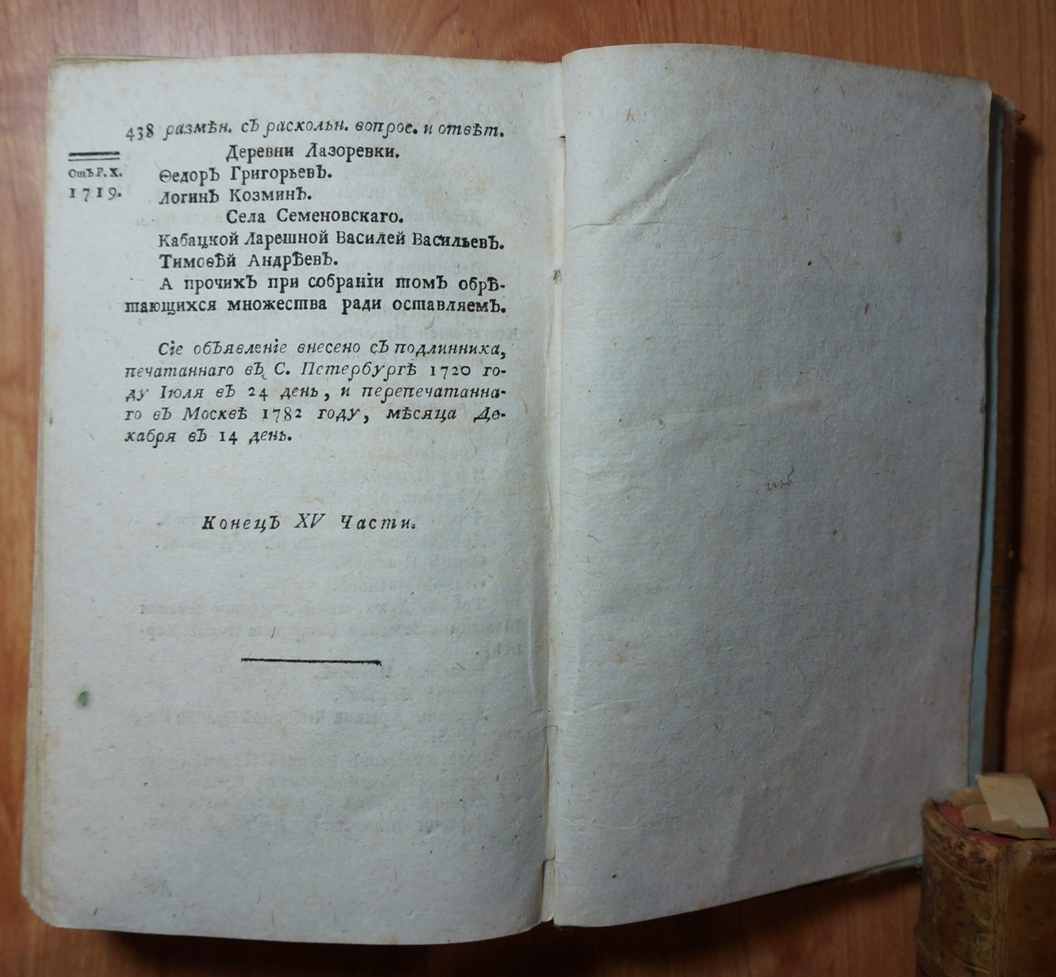 438 размѣн. съ раскольн. вопрос. и отвѣт.
Деревни Лазоревки.
Отъ Р. Х.
1719.
Ѳедоръ Григорьевъ.
Логинъ Козминъ.
Села Семеновскаго.
Кабацкой Ларешной Василей Васильевъ.
Тимоѳѣй Андрѣевъ.
А прочихъ при собранїи томъ обрѣ-
тающихся множества ради оставляемъ.
Сїе объявленїе внесено съ подлинника,
печатаннаго въ С. Петербургѣ 1720 го-
ду Іюля въ 24 день, и перепечатанна-
го въ Москвѣ 1782 году, мѣсяца Де-
кабря въ 14 день.
Конецъ XV Части.